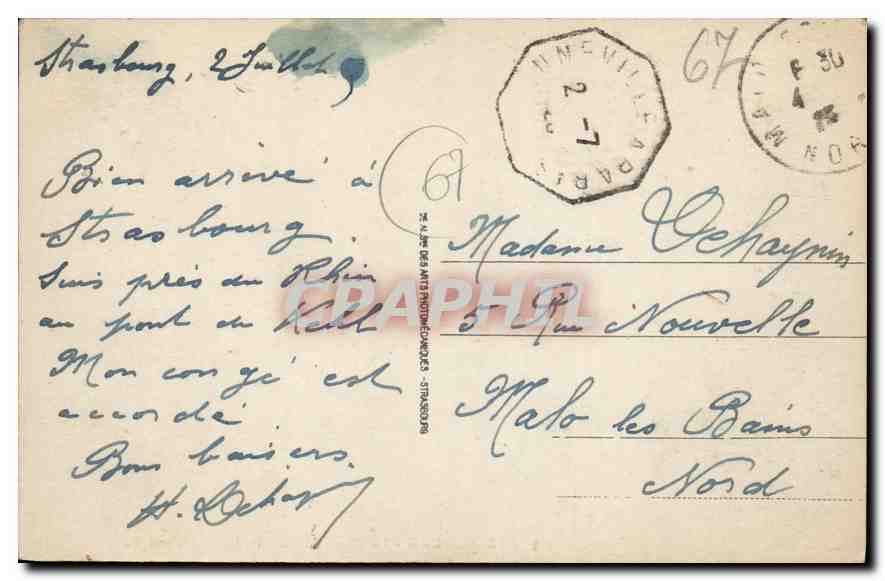 Strasbourg, 2 Juillet
Bien arrivé à
Strasbourg.
Suis près du Rhin
au pont de Kehl
Mon congé est
accordé
Bons baisers.
H. Dehay
67
67
NNEVILLE A PARIS
2 -7
MALO
30
Madame Dehaynin
5 Rue Nouvelle
Malo les Bains
Nord
DES ARTS PHOTOMÉCANIQUES - STRASBOURG
CPAPHIL